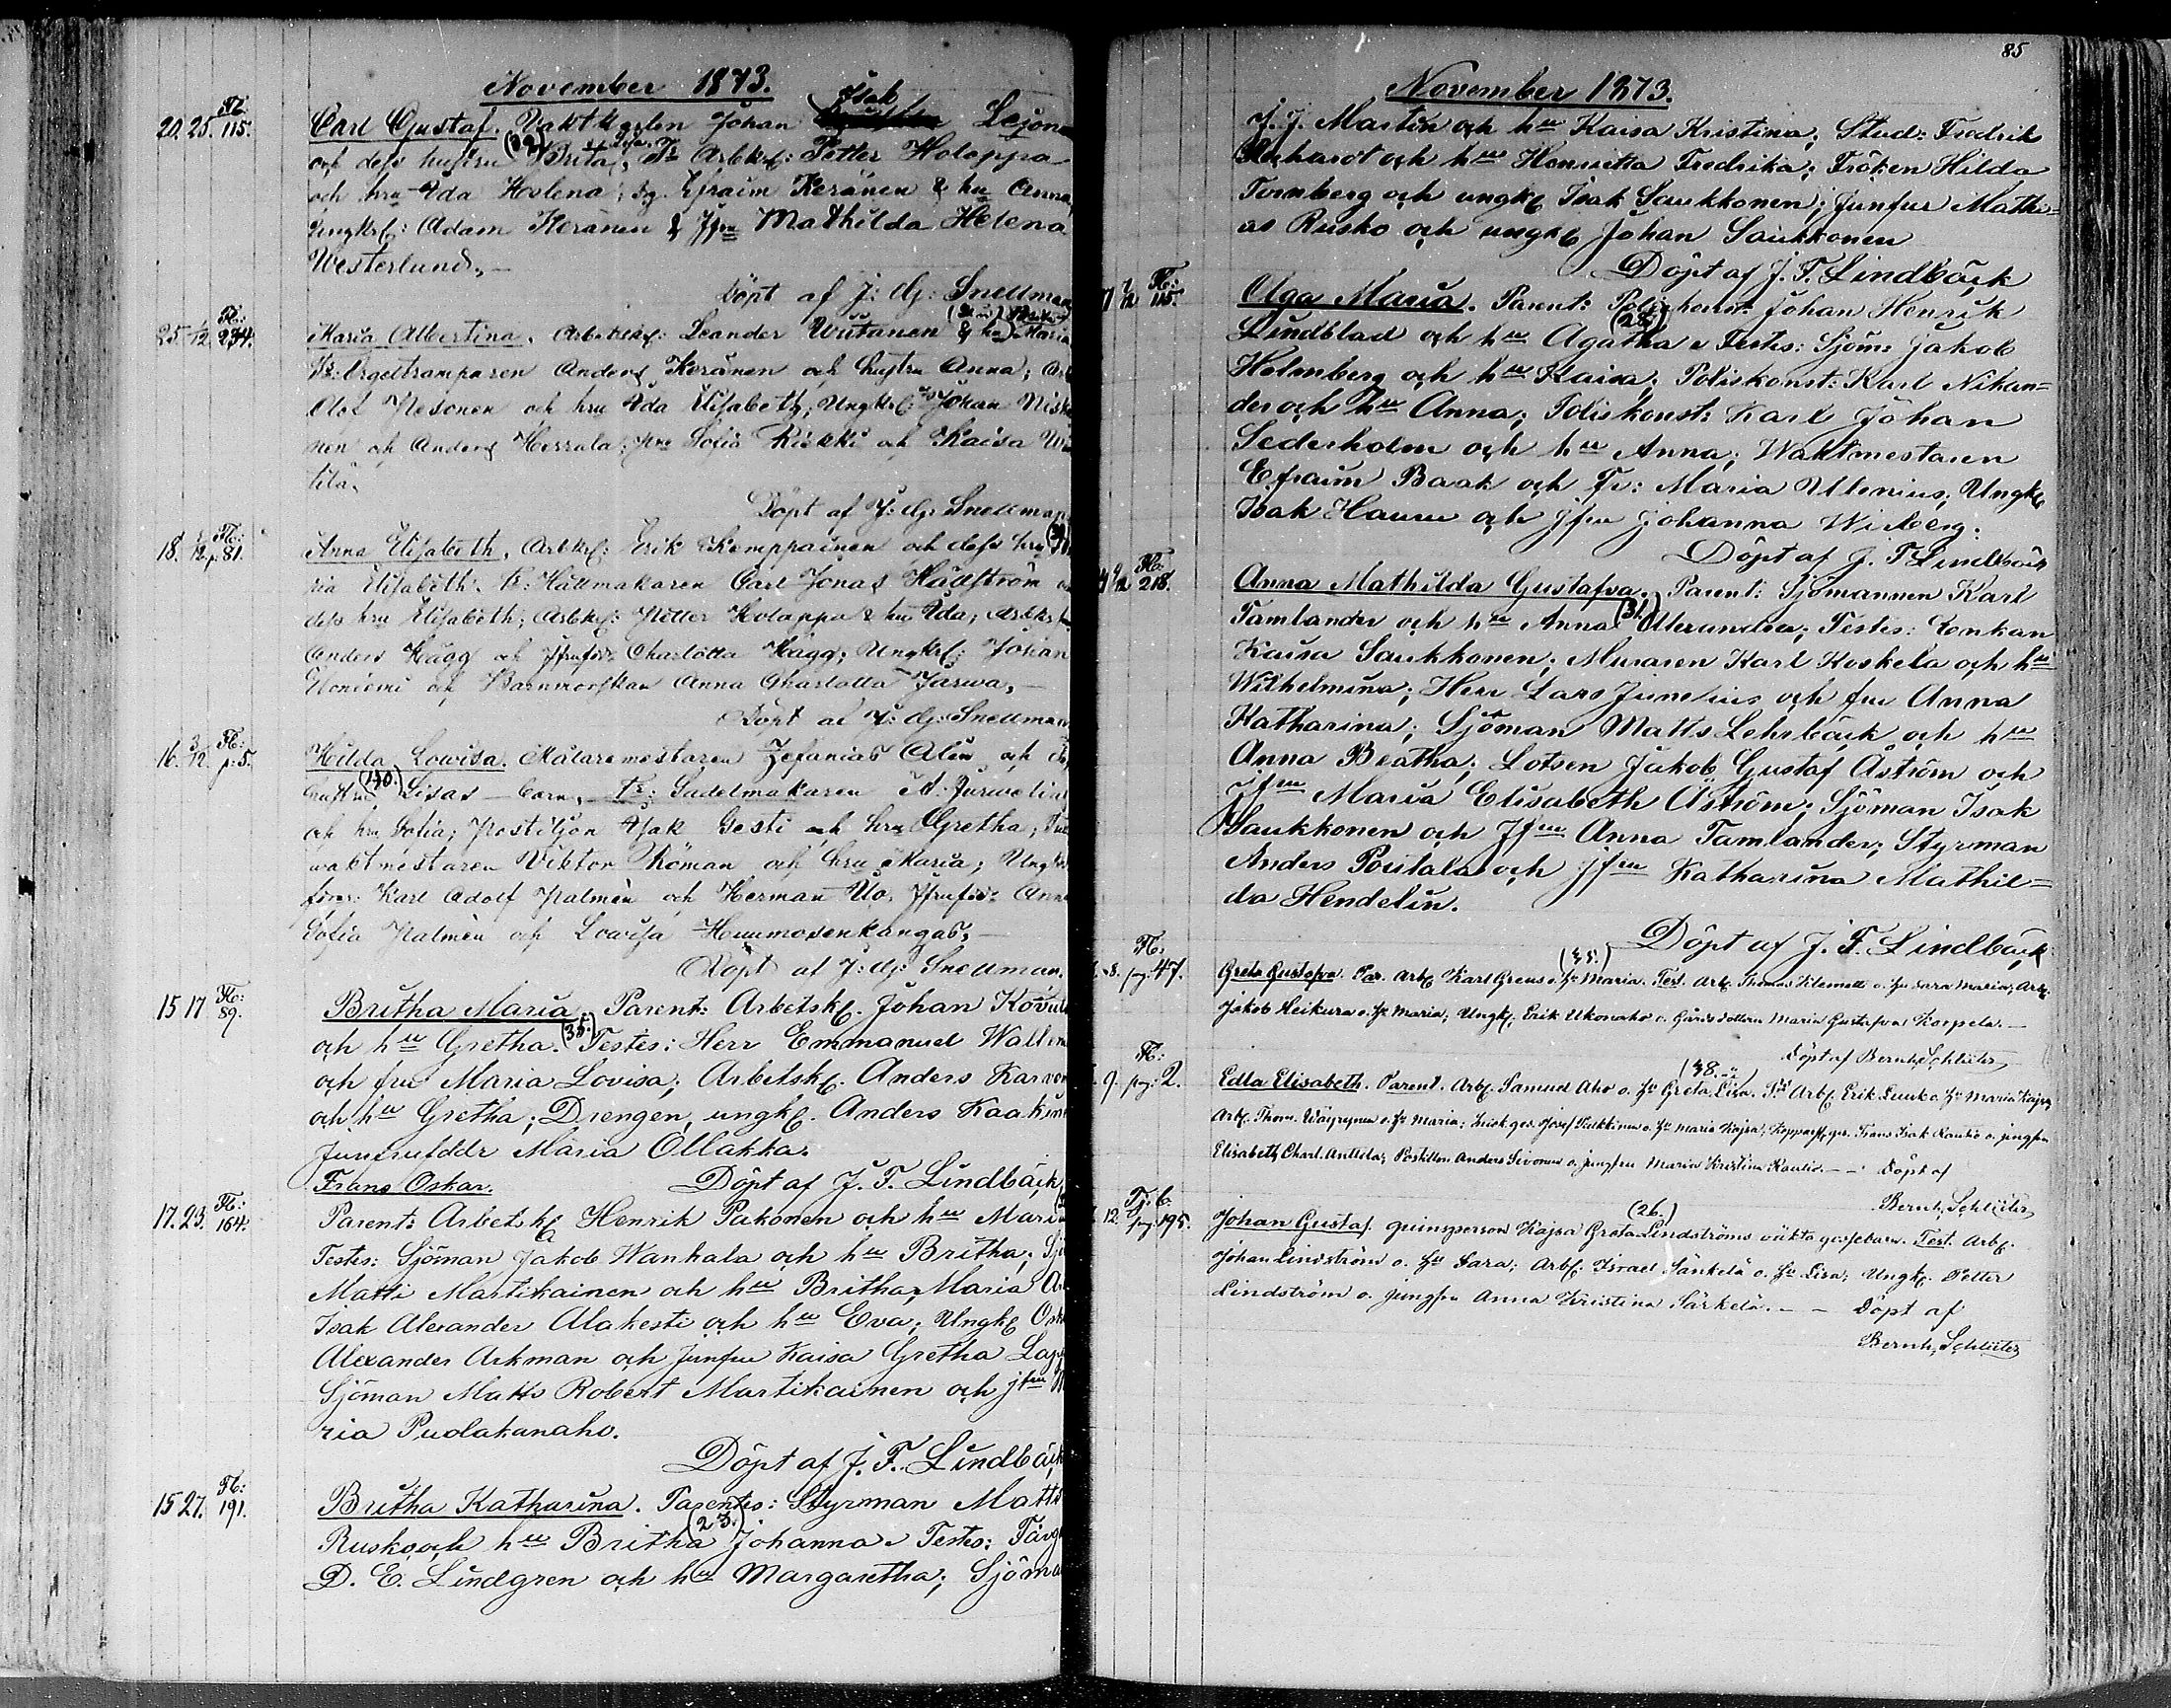 November 1873.
20. 25. Fl. 115. Carl Gustaf. Vaktkarlen Johan Isak Lejon
och dess hustru (32) Brita, Ts Arbkf: Petter Holappa
och hru Ida Helena; dg. Efraim Keränen & hu Anna,
Ungkrf: Adam Keränen & Jfru Mathilda Helena
Westerlund,
Döpt af J: Gj: Snellman
25. 1/12 Fl: 234. Maria Albertina, Arbetskf: Leander Wiitanen & hu Maria
Ts: Orgeltramparen Anders Keränen och hustru Anna;
Adof Pesonen och hru Ida Elisabeth; Ungkrf: Johan Niska
nen och Anders Herrala; Jfru Sofia Riekki och Kaisa
tila.
Döpt af J: Gj: Snellman
18. 1/12 Fl: p. 81. Anna Elisabeth, Arbkrf: Erik Kemppainen och dess hru
ria Elisabeth. Ts: Hattmakaren Carl Jonas Hällström
dess hru Elisabeth; Arbkrf: Petter Holappa & hu Ida;
Anders Hägg och Jfrufr: Charlotta Hägg; Ungkrf: Johan
och Barnmorskan Anna Charlotta Jarwa,
Döpt af J: Gj: Snellman
16. 3/12 Fl: p: 5. Hilda Lowisa. Målaremästaren Zefanias Alin och
hustru (40.) Lisas barn, Ts: Sadelmakaren
och hru Sofia; Postiljon Isak Gesti och hru Gretha;
waktmestaren Viktor Roman och hru Maria;
Karl Adolf Palmèn och Herman Uo, Jfrufr: Anna
Sofia Palmèn och Lowisa Huumosenkangas,
Döpt af J: Gj: Snellman.
15 17 Fl: 89. Britha Maria. Parent: Arbetskf. Johan
och hu Gretha. (35.) Testes: Herr Emmanuel
och fru Maria Lovisa; Arbetskf. Anders
och hu Gretha; Drengen, ungkf. Anders
Maria Ollakka.
Frans Oskar. Döpt af J. F. Lindbäck
17. 23. Fl: 164. Parent: Arbetskf Henrik Pakonen och hu Maria
Testes: Sjöman Jakob Wanhala och hu Britha;
Matti Martikainen och hu Britha Maria
Isak Alexander Alakesti och hu Eva; Ungkf
Alexander Arkman och Junfru Kaisa Gretha
Sjöman Matts Robert Martikainen och jfru
ria Puolakanaho.
Döpt af J. F. Lindbäck
15 27. Fl: 191. Britha Katharina. Parentes: Styrman Matts
Rusko och hu Britha (23.) Johanna. Testes:
D. E. Lindgren och hu Margaretha; Sjöman
85
November 1873.
J. J. Martin och hu Kaisa Kristina; Stud: Fredrik
och hu Henrietta Fredrika; Fröken Hilda
Tornberg och ungkf Isak Saukkonen; Junfur Mathi=
as Rusko och ungkf Johan Saukkonen
Döpt af J. F. Lindbäck
7/12 Fl: 115. Olga Maria. Parent: Poliskonst: Johan Henrik
Lindblad och hu Agatha (28) Testes: Sjöm: Jakob
Holmberg och hu Kaisa; Poliskonst: Karl Nikan=
der och hu Anna; Poliskonst: Karl Johan
Sederholm och hu Anna; Waktmestaren
Efraim Baak och Fr: Maria Ulenius; Ungkf
Isak Hannu och jfru Johanna Wiberg.
Döpt af J. F Lindbäck
9/12 Fl: 218. Anna Mathilda Gustafva. Parent: Sjömannen Karl
Tamlander och hu Anna (31.) Alexandra; Testes: Enkan
Kaisa Saukkonen; Muraren Karl Koskela och hu
Wilhelmina; Herr Lars Junelius och fru Anna
Katharina; Sjöman Matts Lehrbäck och hu
Anna Beatha; Lotsen Jakob Gustaf Åström och
jfru Maria Elisabeth Åström; Sjöman Isak
Saukkonen och Jfru Anna Tamlander; Styrman
Anders Poutala och jfru Katharina Mathil=
da Hendelin.
Döpt af J. F. Lindbäck
8. Fl. pag. 47. Greta Gustafva. Par. Arbf Karl Greus o. hu Maria. (35.) Test. Arbf. Thomas Klemetti o. hu Sara Maria; Arbf.
Jakob Heikura o. hu Maria; Ungkf. Erik Ukonaho o. Gårdsdottren Maria Gustafva Korpela.
Döpt af Bernh. Schlüter
9. Fl: pag: 2. Edla Elisabeth. Parent. Arbf. Samuel Aho o. hu Greta Lisa. (38.) Arbf. Erik Luuk o. hu Maria Kajsa;
Arbf. Thom. Väyrynen o. hu Maria; Josef Pulkkinen o. hu Maria Kajsa; Kopparsl. ges. Frans Isak Rautio o. jungfru
Elisabeth Charl. Anttila; Postillon Anders Sivonen o. jungfru Maria Kristina Rautio. Döpt af
Bernh. Schlüter
12. Tj. b. pag. 195. Johan Gustaf. qvinsperson Kajsa Greta Lindströms (26.) oäkta gossebarn. Test. Arbf.
Johan Lindström o. hu Sara; Arbf. Israel Särkelä o. hu Lisa; Ungkf. Petter
Lindström o. jungfru Anna Kristina Särkelä. Döpt af
Bernh. Schlüter